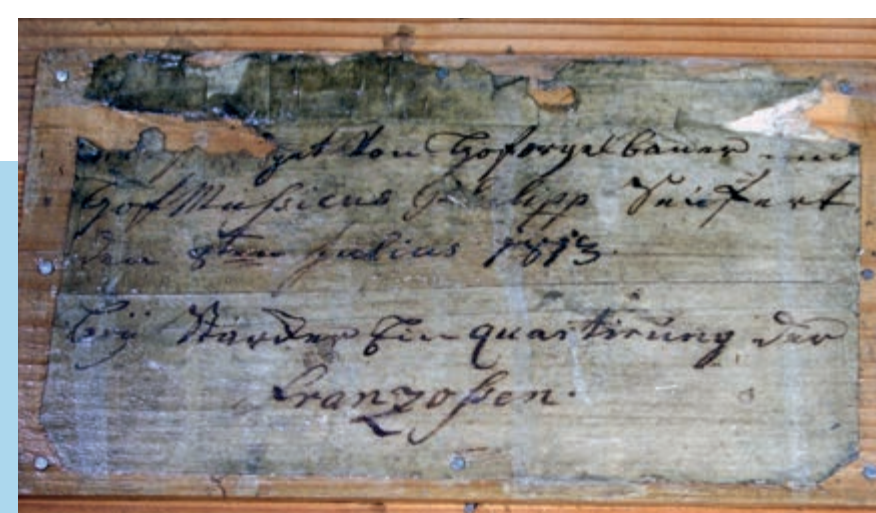 get von Hoforgelbauer
Hof Mußicus Philipp Seuffert
den 8ten Julius 1813
beÿ Starcker Einquartirung der
Franzoßen.